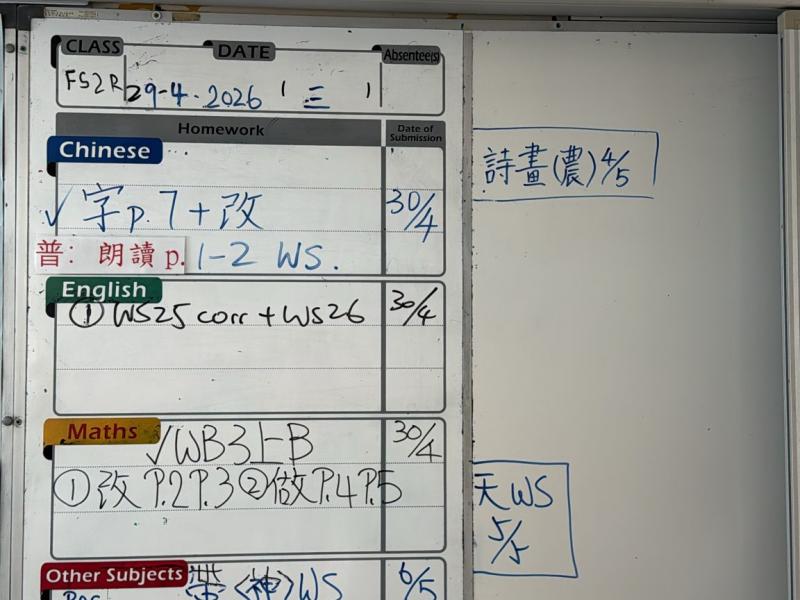 CLASS DATE Absentee(s)
FS2R 29-4-2026 (三)
Homework Date of Submission
Chinese
✓ 字 p.7+改 30/4
普: 朗讀 p. 1-2 WS.
English
① WS25 corr + WS26 30/4
Maths
✓WB3上B 30/4
①改 P.2 P.3 ②做 P.4 P.5
Other Subjects
帶<神>WS 6/5
詩畫(農) 4/5
天WS
5/5